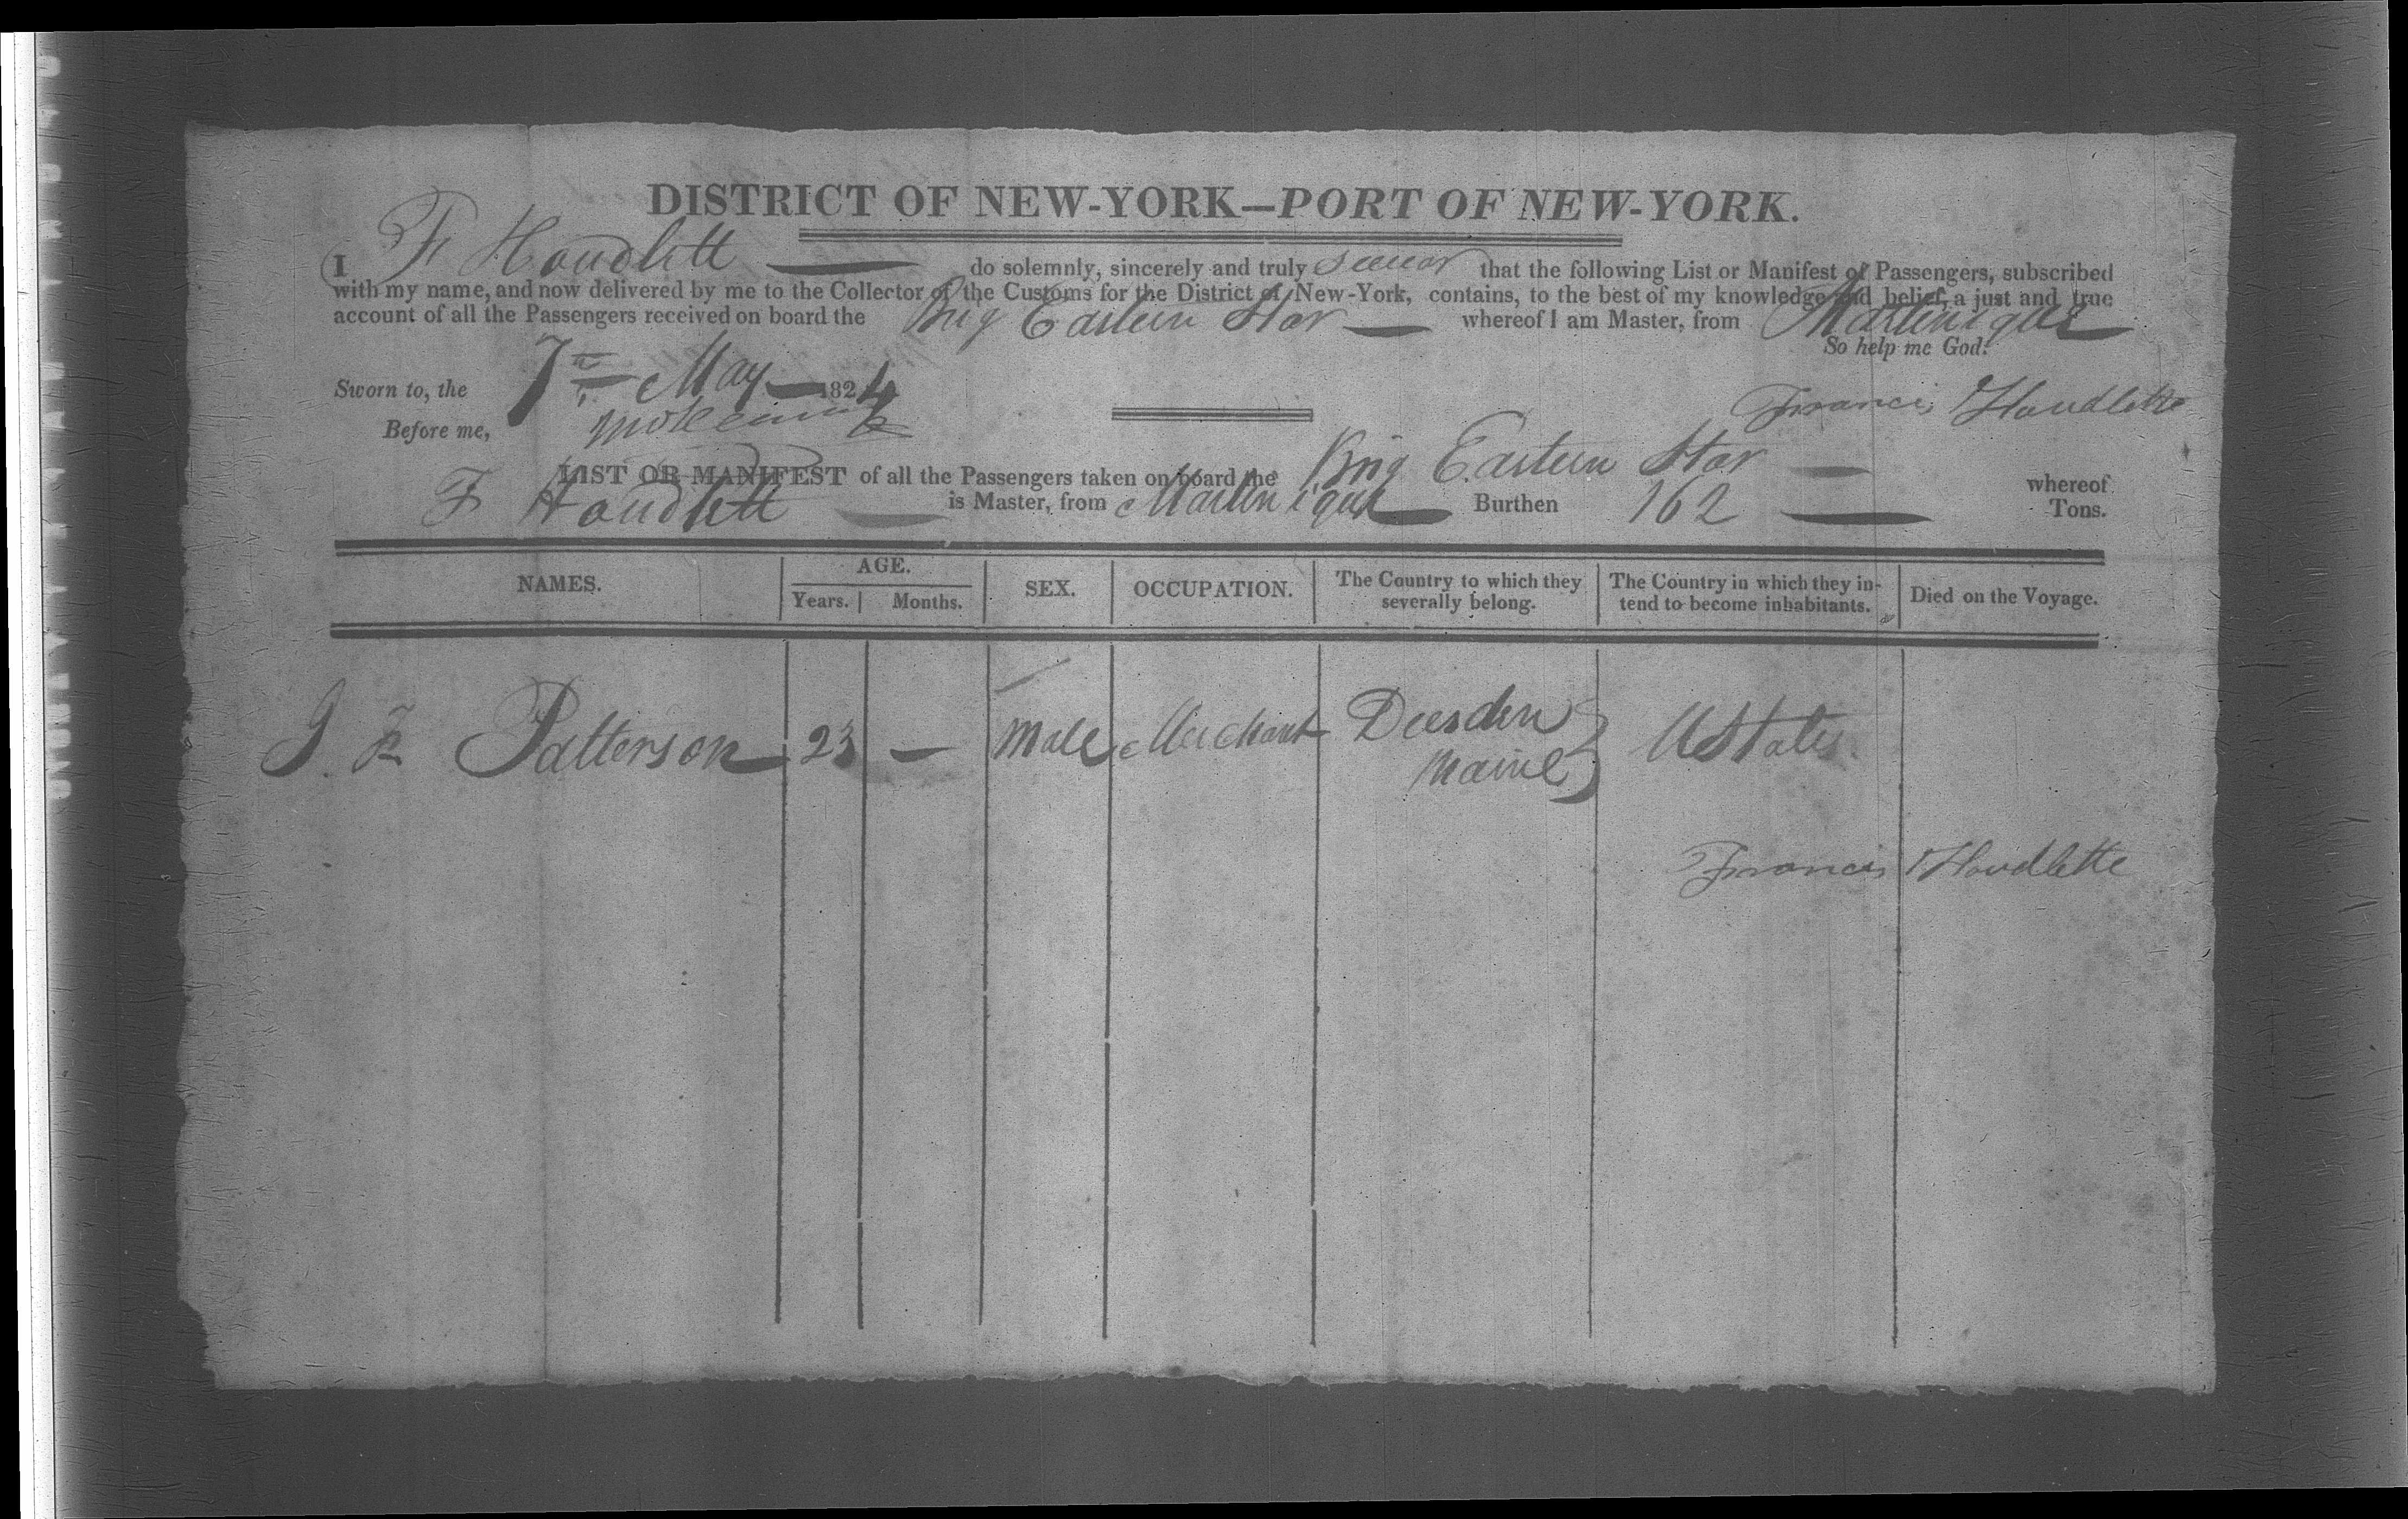 DISTRICT OF NEW-YORK—PORT OF NEW-YORK.
I F Houdlett do solemnly, sincerely and truly swear that the following List or Manifest of Passengers, subscribed
with my name, and now delivered by me to the Collector of the Customs for the District of New-York, contains, to the best of my knowledge and belief, a just and true
account of all the Passengers received on board the Brig Eastern Star whereof I am Master, from Martinique
So help me God.
Sworn to, the 7th May 1824
Francis Houdlette
Before me,
LIST OR MANIFEST of all the Passengers taken on board the Brig Eastern Star whereof
F Houdlett is Master, from Martinique Burthen 162 Tons.
NAMES. AGE. Years. Months. SEX. OCCUPATION. The Country to which they severally belong. The Country in which they intend to become inhabitants. Died on the Voyage.
J. F Patterson 23 — Male Merchant Dresden Maine } U States
Francis Houdlette